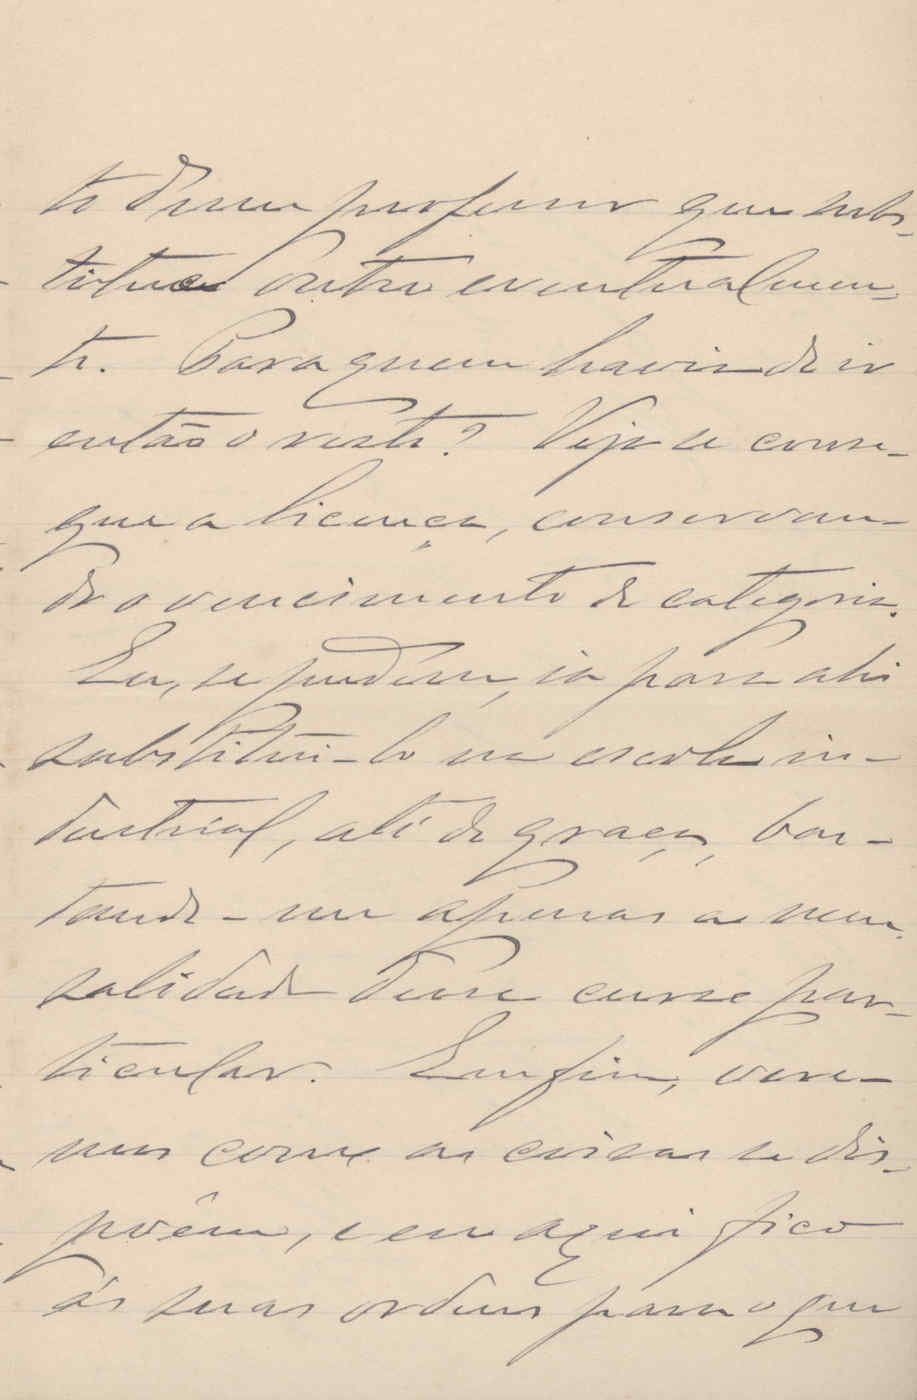 to d'um professor que subs-
titue outro eventualmen-
te. Para quem havia de ir
então o resto? Veja se conse-
gue a licença, conservan-
do o vencimento de categoria.
Eu, se pudesse, ia para ahi
substitui-lo na escola in-
dustrial, até de graça, bas-
tando-me apenas a men-
salidade d'esse curso par-
ticular. Emfim, vere-
mos como as coisas se dis-
põem, e eu aqui fico
ás suas ordens para o que